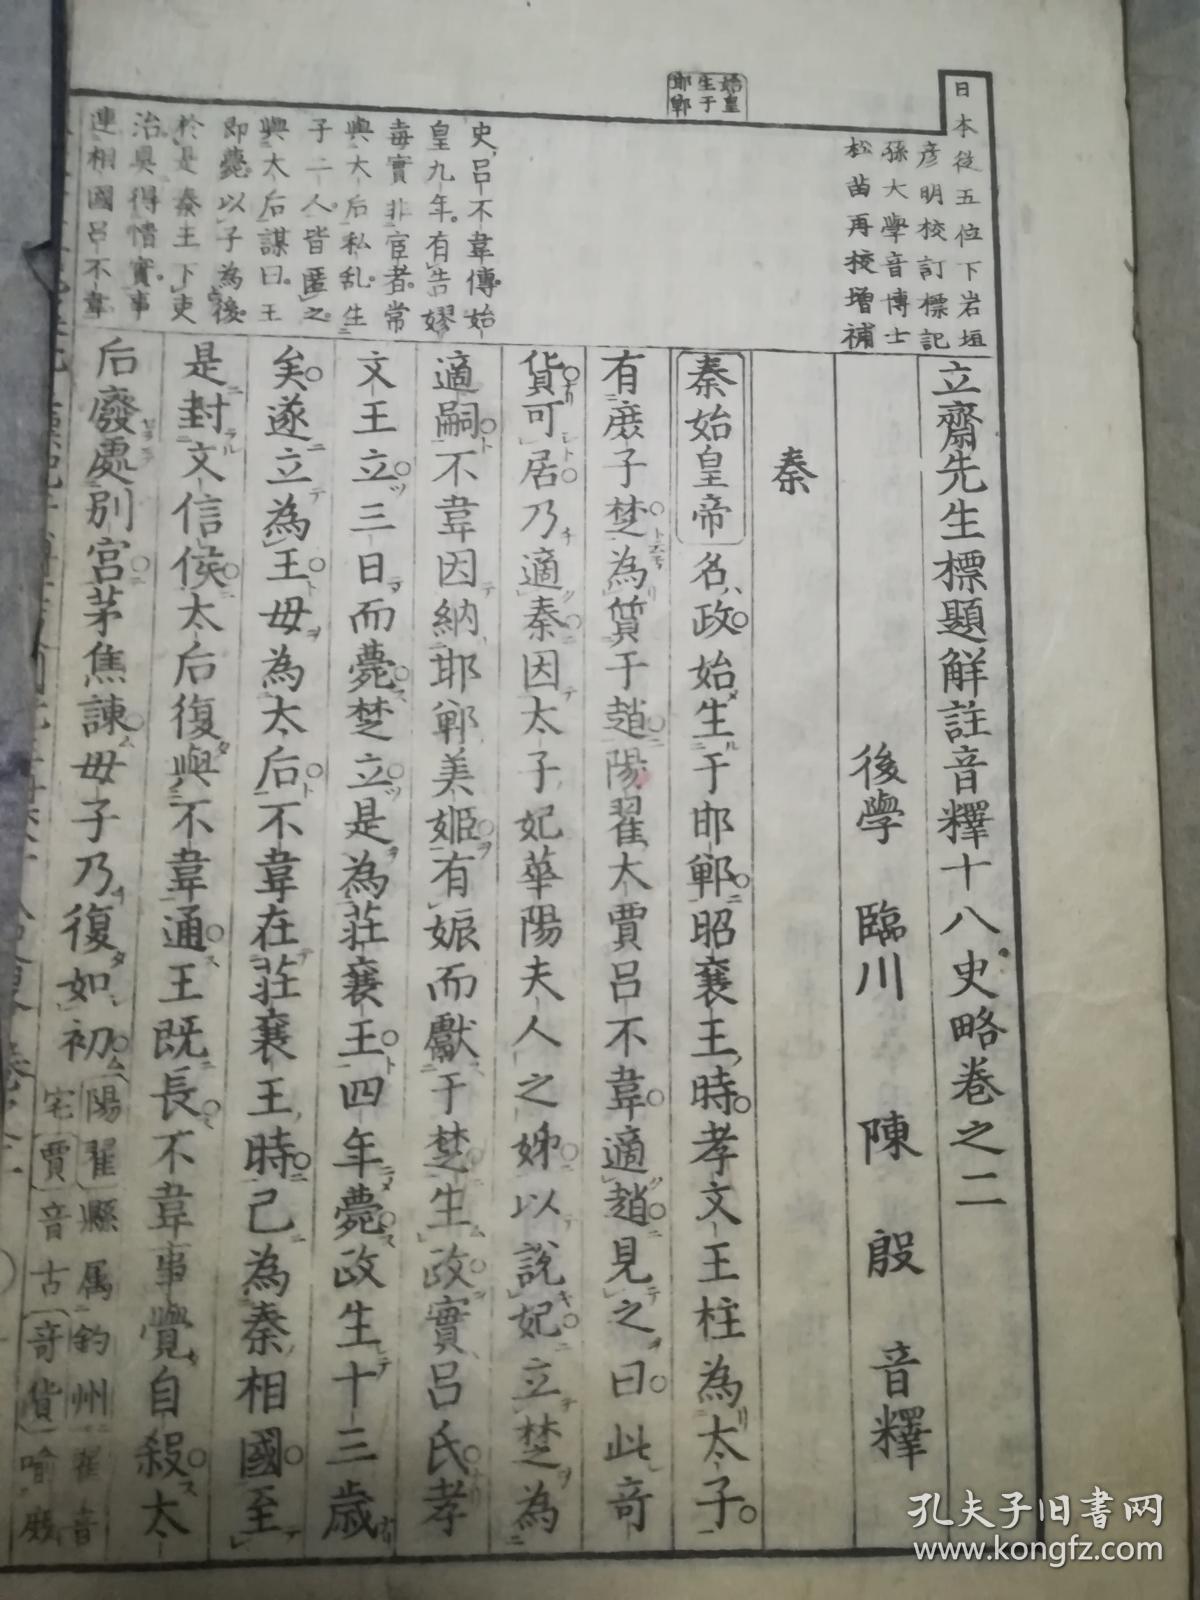 日本從五位下岩垣
彦明校訂標記
孫大學音博士
松苗再校增補
始皇
生于
邯鄲
立齋先生標題解註音釋十八史略卷之二
後學 臨川 陳 殷 音釋
秦
秦始皇帝名政始生于邯鄲昭襄王時孝文王柱為太子
有庶子楚為質于趙陽翟大賈呂不韋適趙見之曰此奇
貨可居乃適秦因太子妃華陽夫人之姊以說妃立楚為
適嗣不韋因納邯鄲美姬有娠而獻于楚生政實呂氏孝
文王立三日而薨楚立是為莊襄王四年薨政生十三歲
矣遂立為王母為太后不韋在莊襄王時已為秦相國至
是封文信侯太后復與不韋通王既長不韋事覺自殺太
后廢處別宮茅焦諫母子乃復如初
陽翟縣属鈞州翟音
宅賈音古奇貨喻
史呂不韋傳始
皇九年有告嫪
毐實非宦者常
與太后私乱生
子二人皆匿之
與太后謀曰王
即薨以子為後
於是秦王下吏
治具得情實事
連相國呂不韋
孔夫子旧书网
www.kongfz.com